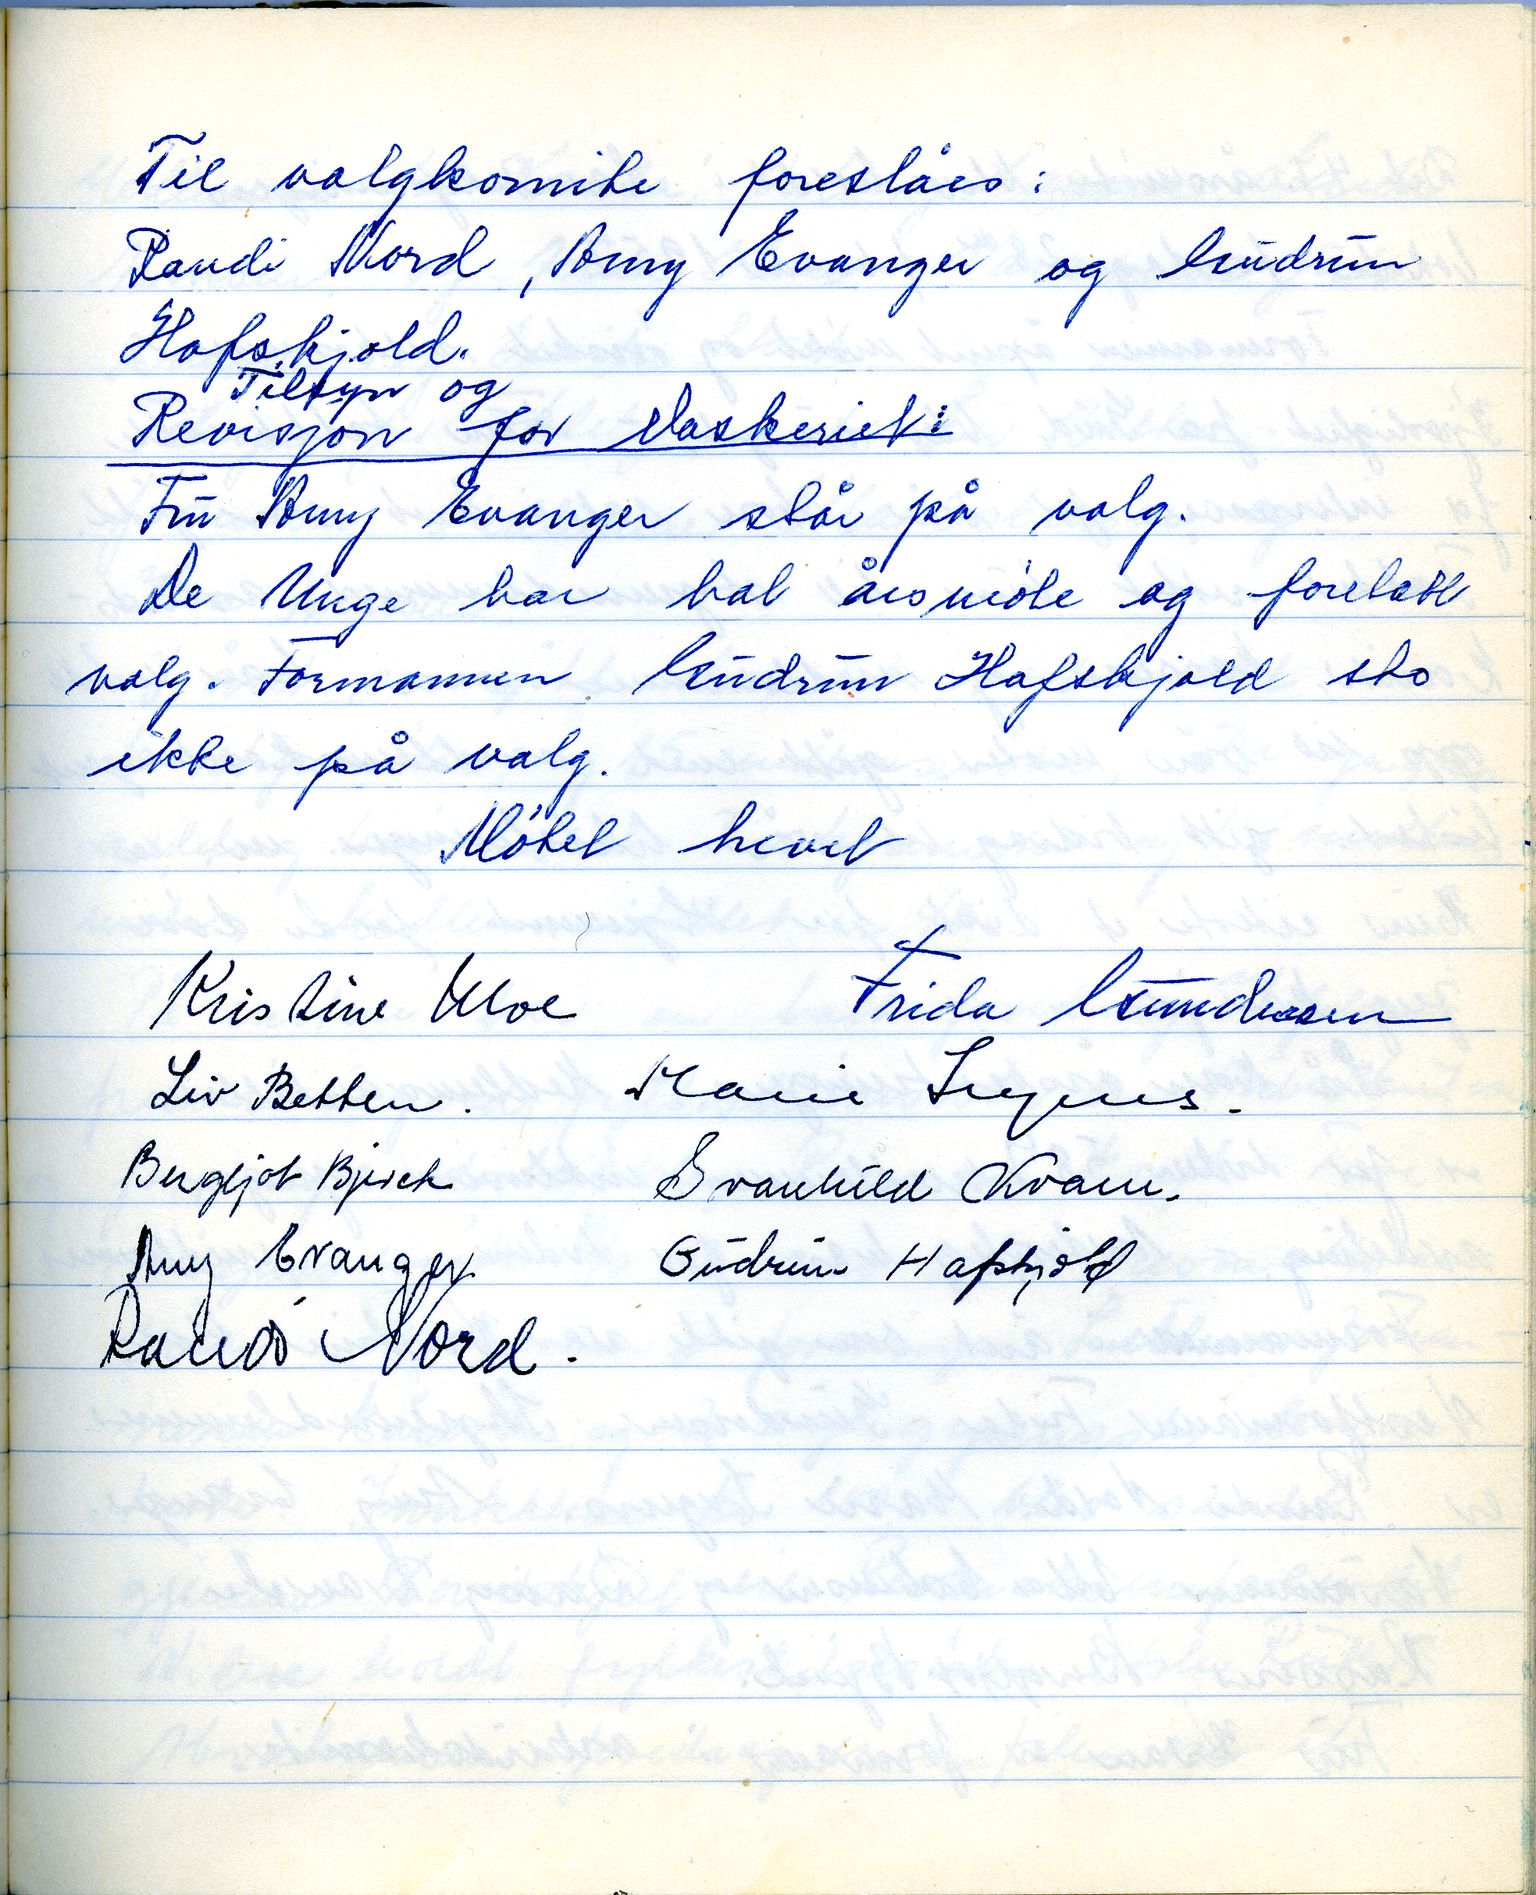 Til valgkomite foreslåes:
Randi Nord, Amy Evanger og Gudrun
Hafskjold.
Tilsyn og
Revisjon for Vaskeriet:
Fru Amy Evanger står på valg.
De Unge har hat årsmöte og foretatt
valg. Formannen Gudrun Hafskjold sto
ikke på valg.
Mötet hevet
Kristine Moe Frida Gundersen
Liv Betten. Marie
Bergljot Bjørck Svanhild Kvam.
Amy Evanger Gudrun Hafskjold
Randi Nord.